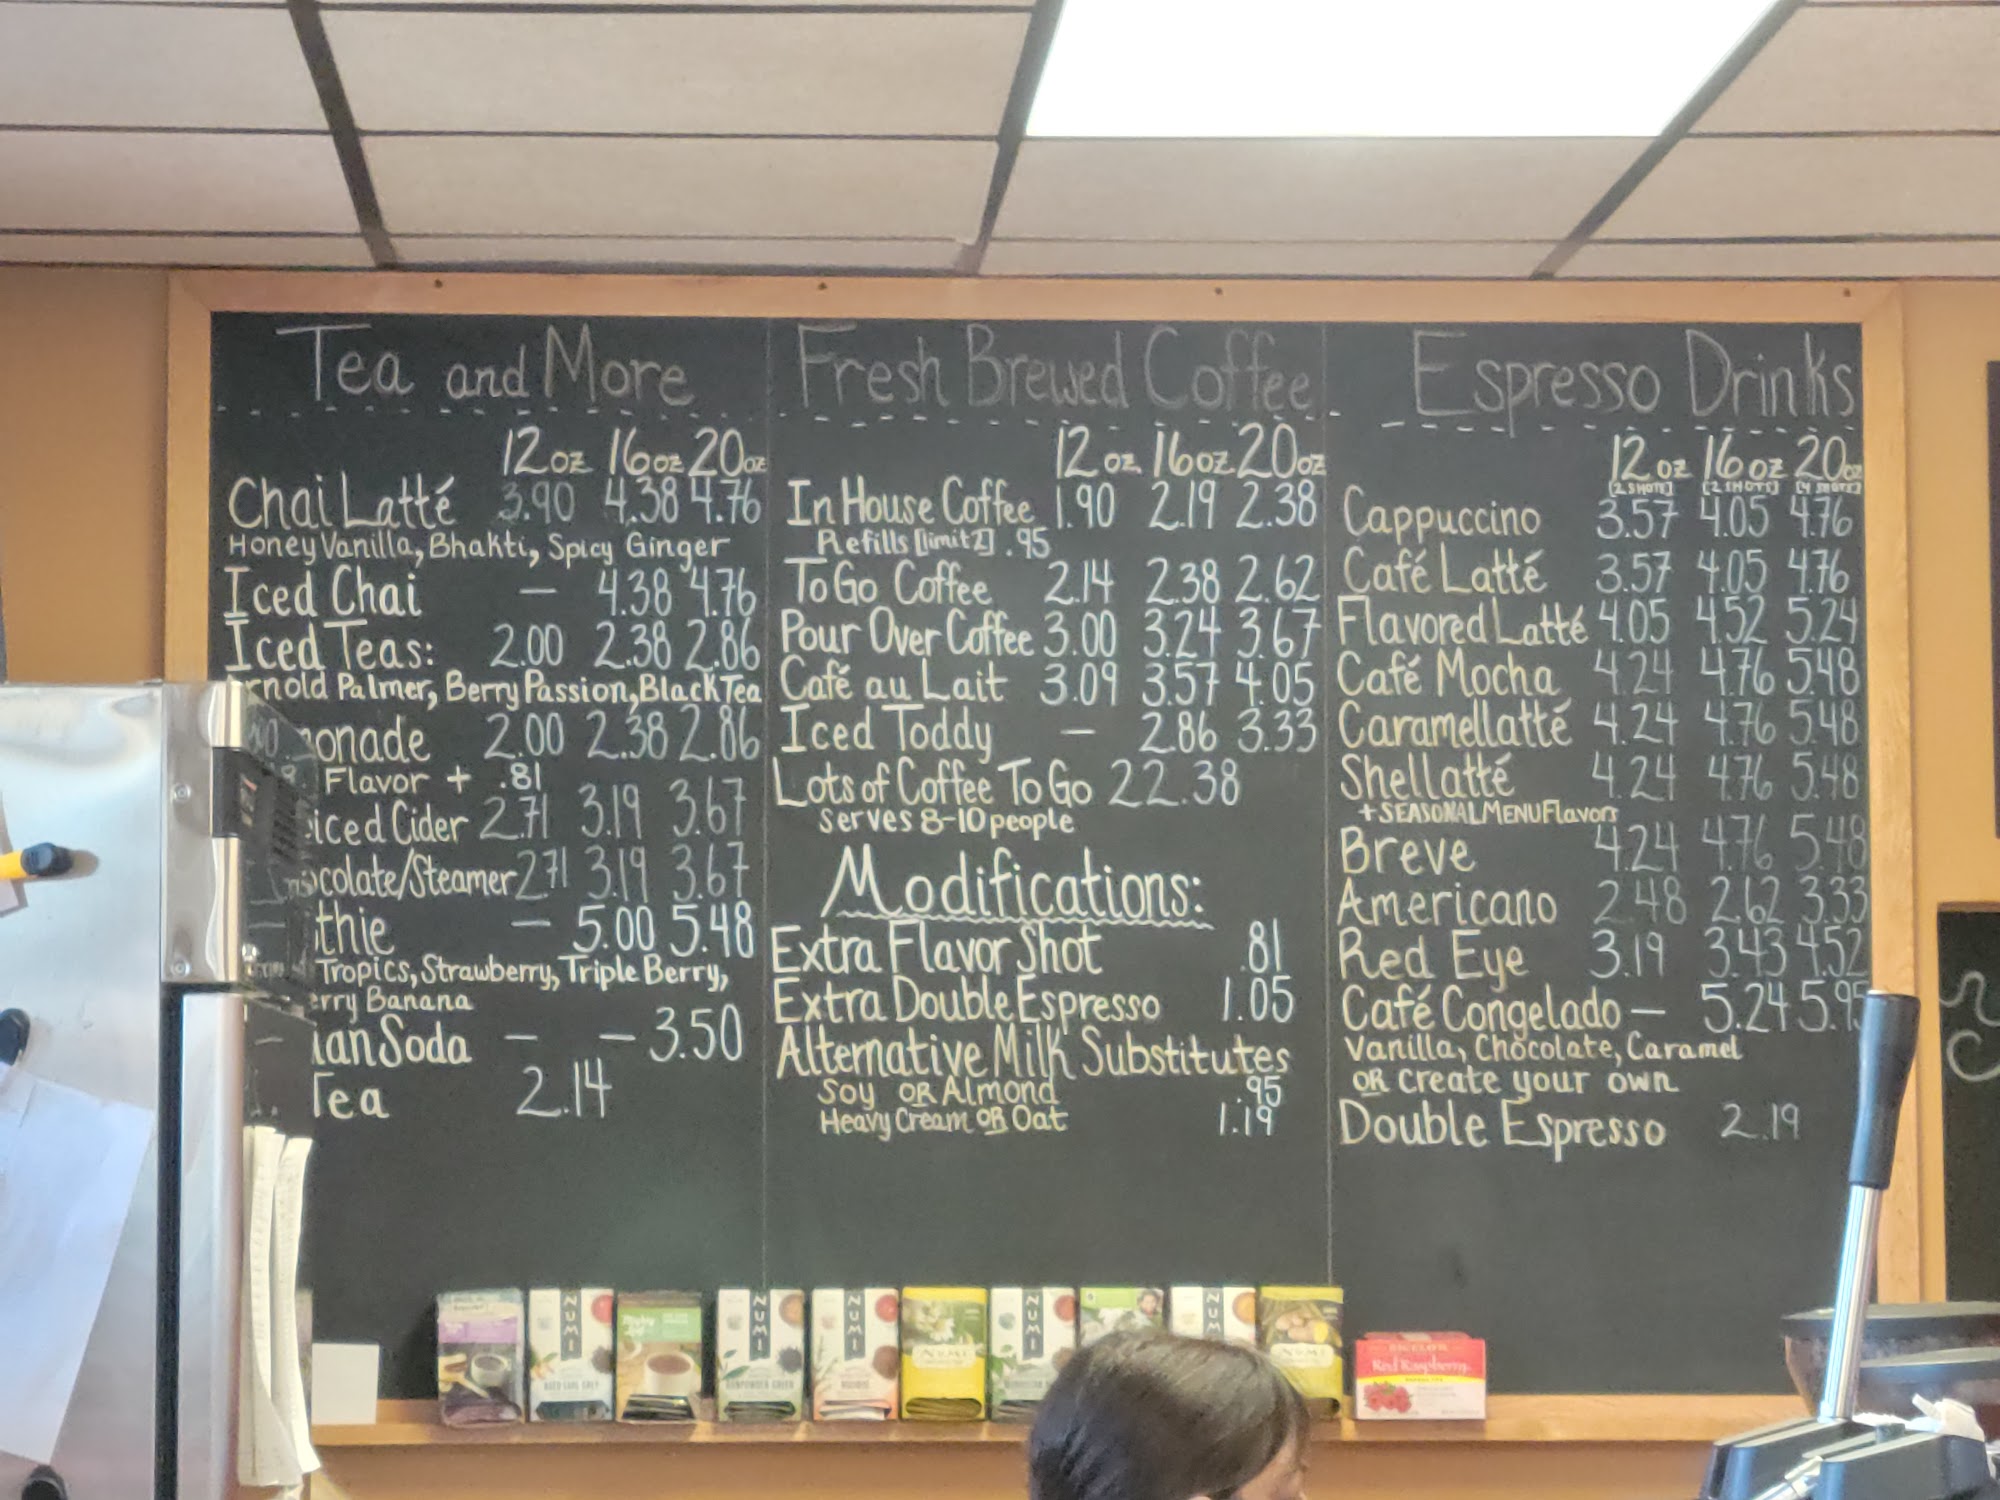 Tea and More
12oz 16oz 20oz
Chai Latté 3.90 4.38 4.76
Honey Vanilla, Bhakti, Spicy Ginger
Iced Chai — 4.38 4.76
Iced Teas: 2.00 2.38 2.86
rnold Palmer, Berry Passion, Black Tea
onade 2.00 2.38 2.86
Flavor + .81
iced Cider 2.71 3.19 3.67
colate/Steamer 2.71 3.19 3.67
thie — 5.00 5.48
Tropics, Strawberry, Triple Berry,
erry Banana
ian Soda — — 3.50
Tea 2.14
Fresh Brewed Coffee
12oz 16oz 20oz
In House Coffee 1.90 2.19 2.38
Refills [limit 2] .95
To Go Coffee 2.14 2.38 2.62
Pour Over Coffee 3.00 3.24 3.67
Café au Lait 3.09 3.57 4.05
Iced Toddy — 2.86 3.33
Lots of Coffee To Go 22.38
serves 8-10 people
Modifications:
Extra Flavor Shot .81
Extra Double Espresso 1.05
Alternative Milk Substitutes
Soy OR Almond .95
Heavy Cream OR Oat 1.19
Espresso Drinks
12oz 16oz 20oz
[2 SHOTS] [2 SHOTS] [4 SHOTS]
Cappuccino 3.57 4.05 4.76
Café Latté 3.57 4.05 4.76
Flavored Latté 4.05 4.52 5.24
Café Mocha 4.24 4.76 5.48
Caramellatté 4.24 4.76 5.48
Shellatté 4.24 4.76 5.48
+ SEASONAL MENU Flavors
Breve 4.24 4.76 5.48
Americano 2.48 2.62 3.33
Red Eye 3.19 3.43 4.52
Café Congelado — 5.24 5.95
Vanilla, Chocolate, Caramel
OR create your own
Double Espresso 2.19
NUMI
NUMI
NUMI
NUMI
NUMI
NUMI
NUMI
NUMI
AGED EARL GREY
GUNPOWDER GREEN
ROOIBOS
BIGELOW
Red Raspberry